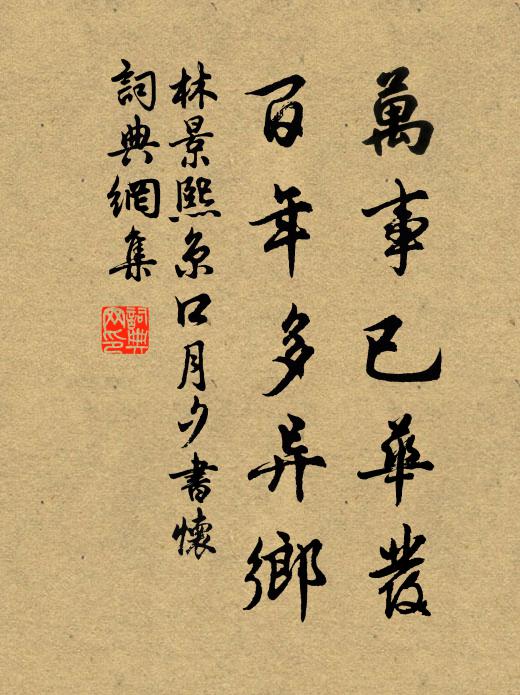 萬事已華發
百年多异鄉
林景熙京口月夕書懷
詞典網集
詞典
网印